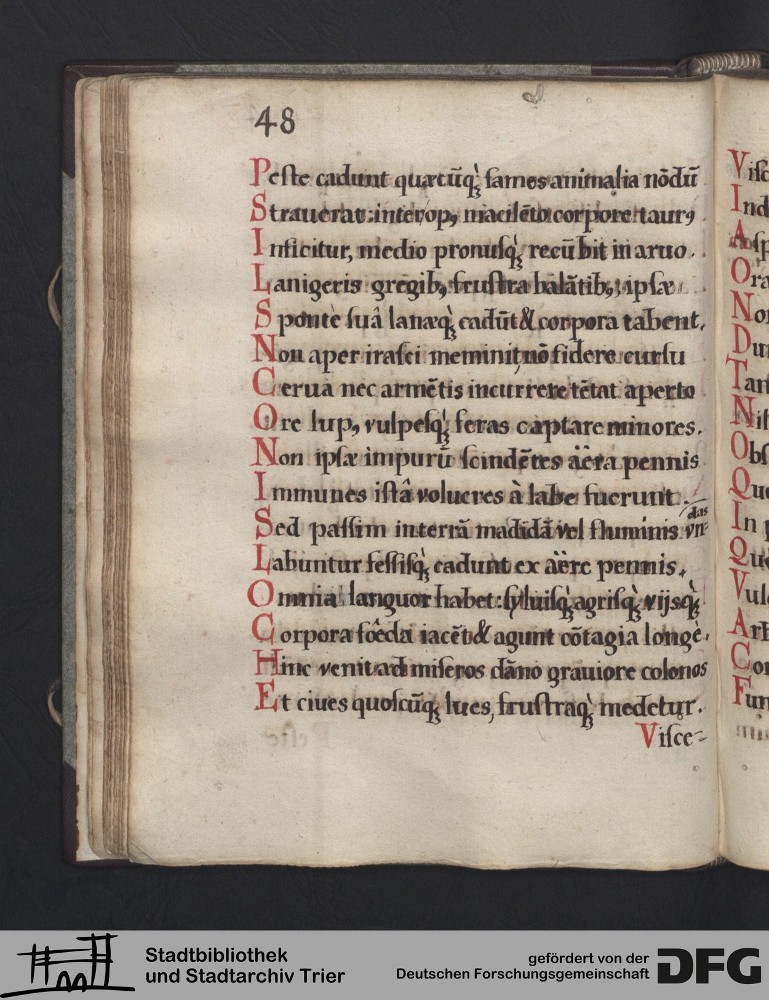 48
Peste cadunt quæcūq;̀ fames animalia nōdū
Strauerat: inter op, macilēto corpore taur,
Inficitur, medio pronusq;̀ recūbit in aruo.
Lanigeris gregib, frustra balātib, ipsæ
Sponte suâ lanæq;̀ cadūt & corpora tabent,
Non aper irasci meminit, nō fidere cursu
Cerua nec armētis incurrere tētat aperto
Ore lup, vulpesq;̀ feras captare minores.
Non ipsæ impurū scindētes aëra pennis
Immunes istâ volucres à labe fuerunt.
Sed passim in terrā madidā vel fluminis vn-
das
Labuntur fessisq;̀ cadunt ex aëre pennis.
Omnia languor habet: syluisq;̀ agrisq;̀ vijsq;̀
Corpora foêda iacēt & agunt cōtagia longè.
Hinc venit ad miseros dāno grauiore colonos
Et ciues quoscūq; lues, frustraq;̀ medetur.
Visce=
Stadtbibliothek
und Stadtarchiv Trier
gefördert von der
Deutschen Forschungsgemeinschaft
DFG